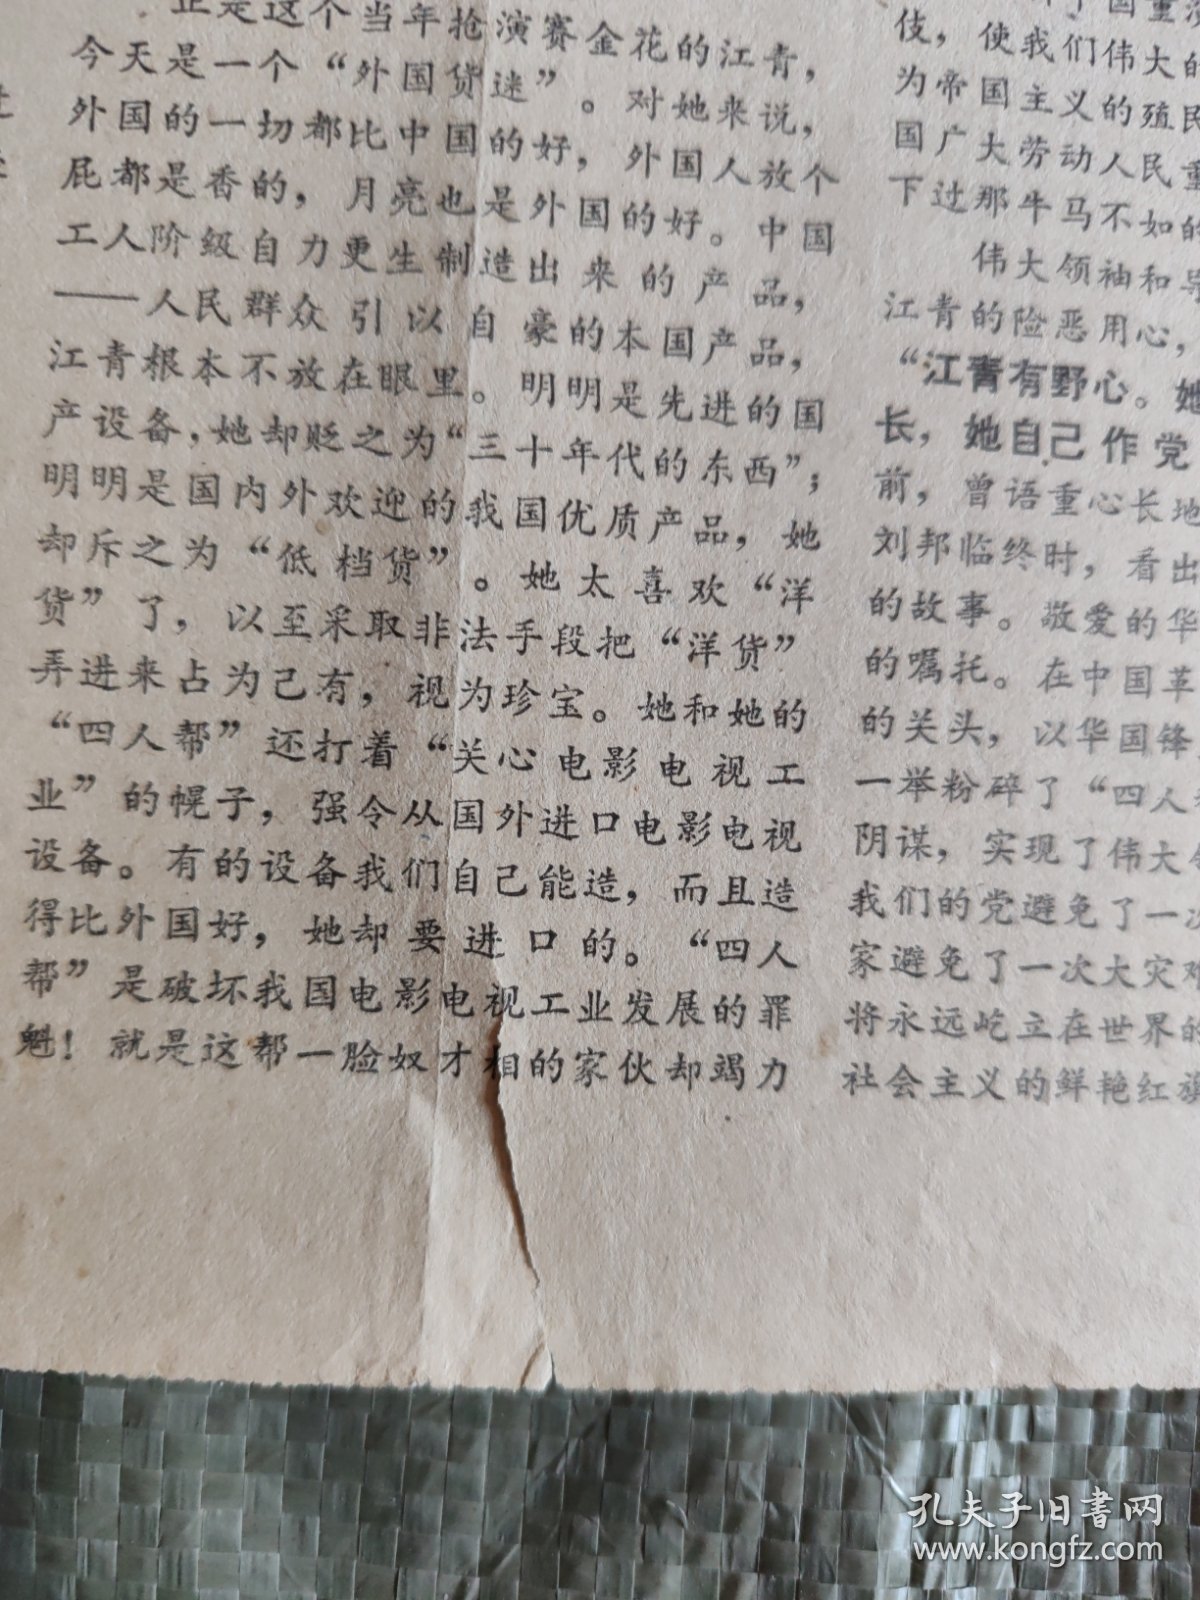 正是这个当年抢演赛金花的江青，
今天是一个“外国货迷”。对她来说，
外国的一切都比中国的好，外国人放个
屁都是香的，月亮也是外国的好。中国
工人阶级自力更生制造出来的产品，
——人民群众引以自豪的本国产品，
江青根本不放在眼里。明明是先进的国
产设备，她却贬之为“三十年代的东西”；
明明是国内外欢迎的我国优质产品，她
却斥之为“低档货”。她太喜欢“洋
货”了，以至采取非法手段把“洋货”
弄进来占为己有，视为珍宝。她和她的
“四人帮”还打着“关心电影电视工
业”的幌子，强令从国外进口电影电视
设备。有的设备我们自己能造，而且造
得比外国好，她却要进口的。“四人
帮”是破坏我国电影电视工业发展的罪
魁！就是这帮一脸奴才相的家伙却竭力
国重
伎，使我们伟大的
为帝国主义的殖民
国广大劳动人民重
下过那牛马不如的
伟大领袖和导
江青的险恶用心，
“江青有野心。她
长，她自己作党
前，曾语重心长地
刘邦临终时，看出
的故事。敬爱的华
的嘱托。在中国革
的关头，以华国锋
一举粉碎了“四人
阴谋，实现了伟大
我们的党避免了一次
家避免了一次大灾难
将永远屹立在世界的
社会主义的鲜艳红旗
孔夫子旧书网
www.kongfz.com